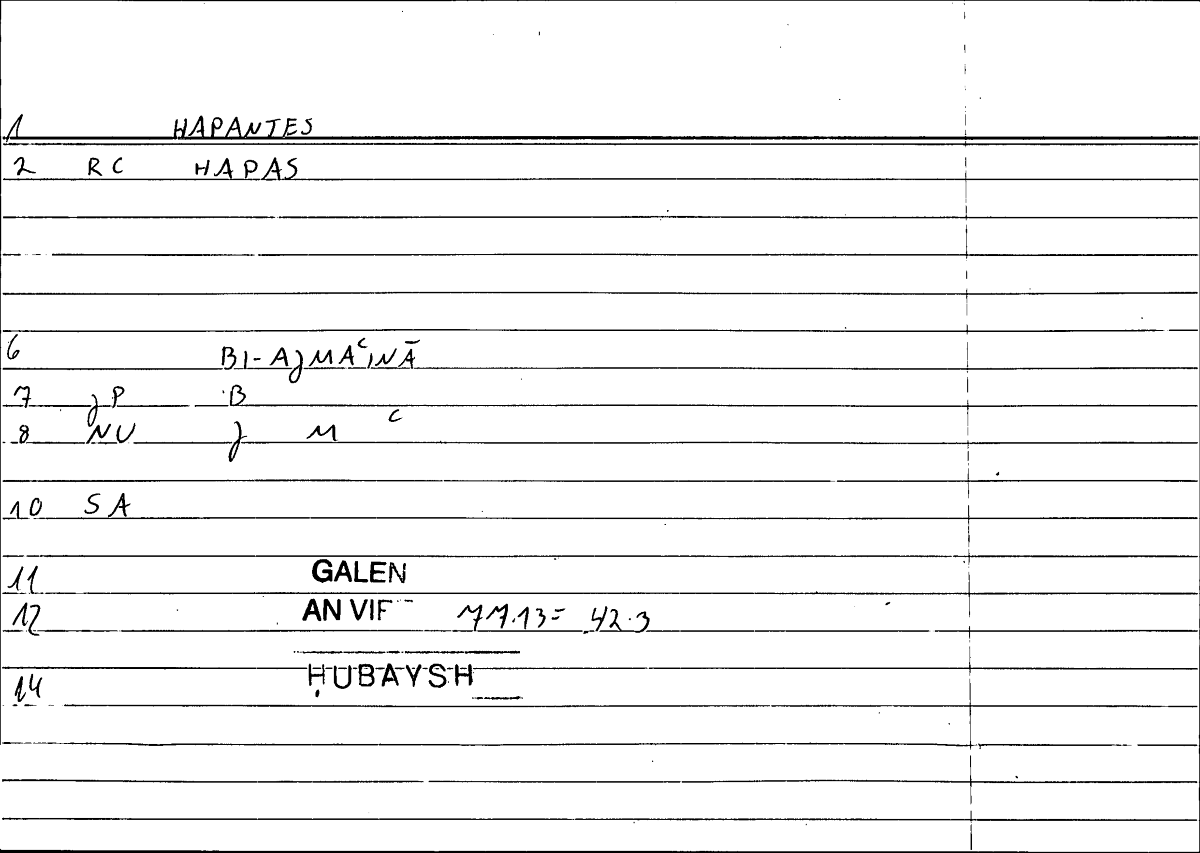 1 HAPANTES
2 RC HAPAS
6 BI-AJMAʿINĀ
7 JP B
8 NU J M ʿ
10 SA
11 GALEN
12 AN VIF 77.13= 42.3
14 ḤUBAYSH